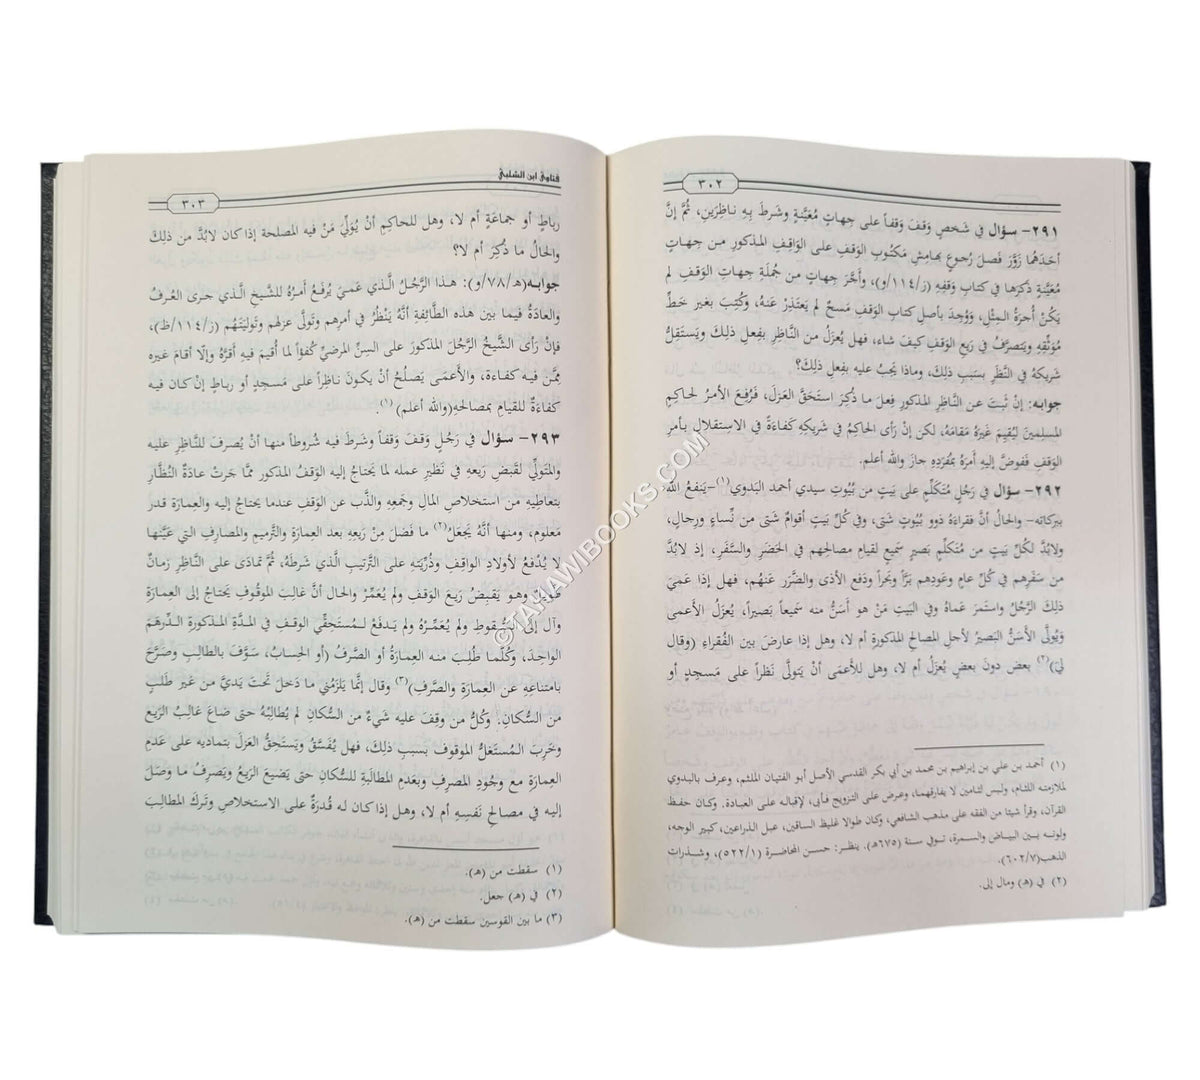 ٣٠٢
٢٩١- سؤال في شخصٍ وَقَفَ وَقفاً على جِهاتٍ مُعَيَّنةٍ وشرطَ بِه ناظِرَينِ، ثُمَّ إنَّ
أحدَهُما زَوَّرَ فَصلَ رُجوعٍ بهامِشِ مَكتُوبِ الوَقفِ على الواقِفِ المذكورِ مِن جِهاتٍ
مُعَيَّنةٍ ذكرَها في كتابِ وَقفِهِ (ز/١١٤/و)، وأجَّرَ جِهاتٍ من جُملَةِ جِهاتِ الوَقفِ لم
يَكُنْ أُجرَةُ المِثْلِ، ووُجِدَ بأصلِ كتابِ الوَقفِ مَسحٌ لم يَعتذِرْ عَنهُ، وكُتِبَ بغير خَطِّ
مُوَثِّقِهِ ويَتصرَّفُ في رَيعِ الوَقفِ كيفَ شاء، فهل يُعزَلُ من النَّاظرِ بِفعلِ ذلكَ ويَستَقِلُّ
شريكهُ في النَّظَرِ بسَببِ ذلكَ، وماذا يَجبُ عليه بِفعلِ ذلِكَ؟
جوابه: إنْ ثَبتَ عن النَّاظرِ المذكورِ فِعلَ ما ذُكِرَ استَحَقَّ العَزلَ، فَرُفِعَ الأمرُ لحاكِمِ
المسلمينَ ليُقِيمَ غَيرَهُ مَقامَهُ، لكن إنْ رأى الحاكِمُ في شَريكِهِ كَفاءَةً في الاِستِقلالِ بأمرِ
الوَقفِ فَفوضَ إليه أمرَهُ بمُفردِهِ جازَ والله أعلم.
٢٩٢- سؤال في رَجُلٍ مُتَكلِّمٍ على بَيتٍ من بُيُوتِ سيدي أحمد البَدوي(١)-يَنفعُ الله
ببركاته- والحالُ أنَّ فقراءَهُ ذوو بُيُوتٍ شَتى، وفي كُلِّ بَيتٍ أقوامٌ شَتى من نِّساءٍ ورِجالٍ،
ولابُدَّ لكُلِّ بَيتٍ من مُتكلِّمٍ بَصيرٍ سَميعٍ لقيامِ مصالحِهم في الحَضَرِ والسَّفَرِ، إذ لابُدَّ
من سَفَرِهم في كُلِّ عامٍ وعَودِهم بَرَّاً وبَحراً ودَفعِ الأذى والضَّررِ عَنهُم، فهل إذا عَمِيَ
ذلِكَ الرَّجُلُ واستَمرَ عَماهُ وفي البَيتِ مَنْ هو أسَنُّ منه سَميعاً بَصيراً، يُعزَلُ الأعمى
ويُولَّى الأسَنُّ البَصيرُ لأجلِ المصالحِ المذكورةِ أم لا، وهل إذا عارضَ بين الفُقراءِ (وقال
لي)(٢) بعض دونَ بعضٍ يُعزَلُ أم لا، وهل للأعمَى أنْ يَتولَّى نَظَراً على مَسجِدٍ أو
(١) أحمد بن علي بن إبراهيم بن محمد بن أبي بكر القدسي الأصل أبو الفتيان الملثم، وعرف بالبدوي
لملازمته اللثام، ولبس لثامين لا يفارقهما، وعرض على التزويج فأبى، لإقباله على العبادة. وكان حفظ
القرآن، وقرأ شيئا من الفقه على مذهب الشافعي، وكان طوالا غليظ الساقين، عبل الذراعين، كبير الوجه،
ولونه بين البياض والسمرة، توفي سنة (٦٧٥هـ). ينظر: حسن المحاضرة (٥٢٢/١)، وشذرات
الذهب(٦٠٢/٧).
(٢) في (هـ) ومال إلى.
فتاوى ابن الشلبي
٣٠٣
رباطٍ أو جماعَةٍ أم لا، وهل للحاكِمِ أنْ يُوَلِّيَ مَنْ فيه المصلحة إذا كان لابُدَّ من ذلِكَ
والحالُ ما ذُكِرَ أم لا؟
جوابه(هـ/٧٨/و): هـذا الرَّجُلُ الَّذي عَمِيَ يُرفَعُ أمرُهُ للشَّيخِ الَّذي جرى العُرفُ
والعادَةُ فيما بين هذه الطَّائفةِ أنَّهُ يَنظُرُ في أمرِهم وتَولَّى عزلهم وتَوليَتَهُم (ز/١١٤/ظ)،
فإنْ رأى الشَّيخُ الرَّجُلَ المذكورَ على السِنِّ المرضيِّ كُفؤاً لما أُقيمَ فيه أقرَّهُ وإلّا أقامَ غيره
مِمَّن فيه كفاءَة، والأعمَى يَصلُحُ أنْ يكونَ ناظراً على مَسجدٍ أو رباطٍ إنْ كان فيه
كفاءَةٌ للقيامِ بمصالحهِ(والله أعلم)(١).
٢٩٣- سؤال في رَجُلٍ وَقفَ وَقفاً وشَرطَ فيه شُروطاً منها أنْ يُصرفَ للنَّاظِرِ عليه
والمُتَولِّي لقَبضِ رَيعِهِ في نَظيرِ عمله لما يَحتاجُ إليه الوَقفُ المذكور ممَّا جَرتْ عادَةُ النُّظَّارِ
بتَعاطيهِ من استخلاصِ المالِ وجَمعِهِ والذَّب عن الوَقفِ عندما يحتاجُ إليه والعِمارَة قدر
مَعلومٍ، ومنها أنَّهُ يَجعَلُ(٢) ما فَضلَ مِنْ رَيعِهِ بعد العِمارَةِ والتَّرميمِ والمصارفِ التي عيَّنَها
لا يُدفَعُ لأولادِ الواقِفِ وذُرِّيَّتِه على التَّرتيبِ الَّذي شَرطَهُ، ثُمَّ تمادَى على النَّاظرِ زمانٌ
طويلٌ وهو يَقبِضُ رَيعَ الوَقفِ ولم يُعَمِّرْ والحال أنَّ غالبَ الموقُوفِ يَحتاجُ إلى العِمارَةِ
وآل إلى السُّقوطِ ولم يُعَمِّرْهُ ولم يَدفعْ لمُستَحِقِّي الوَقفِ في المدَّةِ المذكورةِ الدِّرهَمَ
الواحِدَ، وكُلَّما طُلِبَ منه العِمارَةُ أو الصَّرفُ (أو الحِسابُ، سَوَّفَ بالطالِبِ وصَرَّحَ
بامتناعِهِ عن العِمارَةِ والصَّرفِ)(٣) وقال إنَّما يَلزَمُني ما دَخلَ تَحتَ يَديَّ من غَير طَلَبٍ
من السُّكانِ. وكُلُّ من وقِفَ عليه شَيءٌ من السُّكانِ لم يُطالِبْهُ حتى ضاعَ غالبُ الرَّيعِ
وخَرِبَ المُستَغَلُّ الموقوف بسَببِ ذلكَ، فهل يُفَسَّقُ ويَستَحِقُّ العَزلَ بتماديه على عَدمِ
العِمارَةِ مع وجُودِ المصرِفِ وبعَدمِ المطالَبةِ للسُّكانِ حتى يَضيعَ الرَّيعُ ويَصرِفُ ما وصَلَ
إليه في مصالحِ نَفسِهِ أم لا، وهل إذا كان له قُدرَةٌ على الاستخلاصِ وتَركَ المطالبَ
(١) سقطت من (هـ).
(٢) في (هـ) جعل.
(٣) ما بين القوسين سقطت من (هـ).
©TAHAWIBOOKS.COM